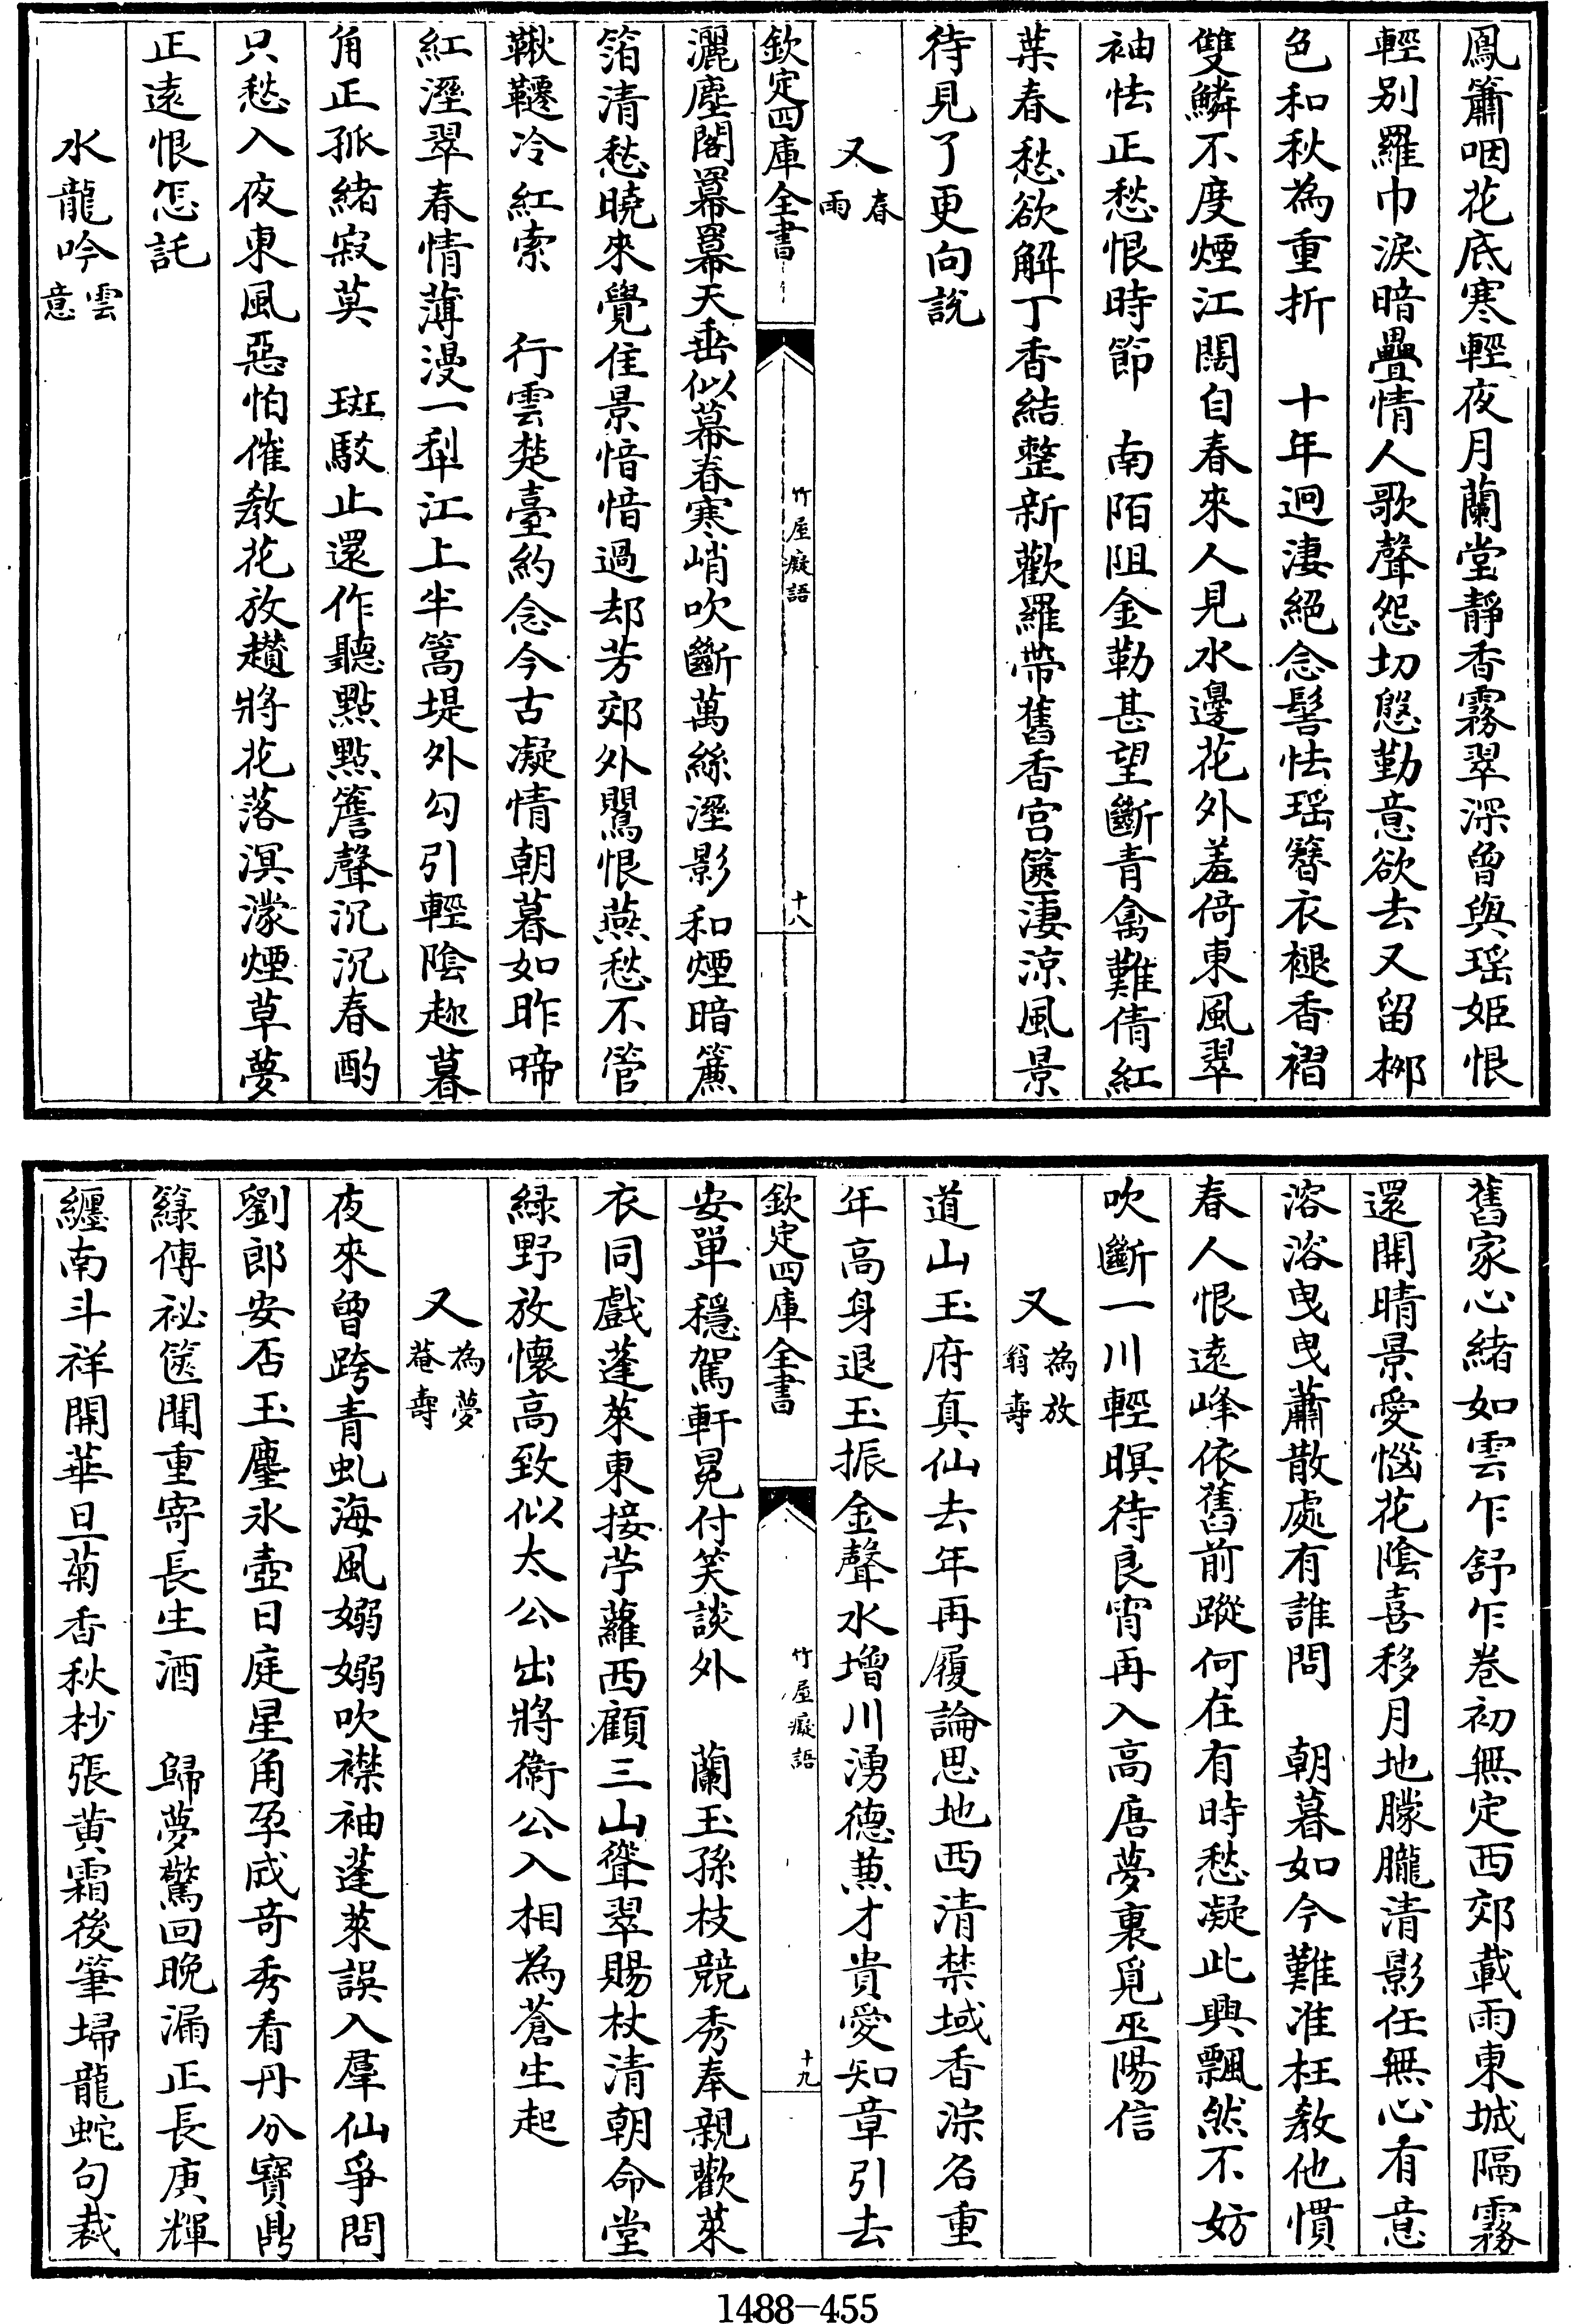 鳳簫咽花底寒輕夜月蘭堂靜香霧翠深曾與瑶姬恨
輕别羅巾淚暗疊情人歌聲怨切慇勤意欲去又留栁
色和秋為重折　十年迥淒絕念髻怯瑶簪衣褪香褶
雙鱗不度煙江闊自春來人見水邊花外羞倚東風翠
袖怯正愁恨時節　南陌阻金勒甚望斷青禽難倩紅
葉春愁欲解丁香結整新歡羅帶舊香宫篋淒涼風景
待見了更向說
又春雨
欽定四庫全書
竹屋癡語
十八
灑塵閣幕幕天垂似幕春寒峭吹斷萬絲溼影和煙暗簾
箔清愁曉來覺佳景愔愔過却芳郊外鶯恨燕愁不管
鞦韆冷紅索　行雲楚臺約念今古凝情朝暮如昨啼
紅溼翠春情薄漫一犁江上半篙堤外勾引輕陰趂暮
角正孤緒寂莫　斑駮止還作聽點點簷聲沉沉春酌
只愁入夜東風惡怕催教花放趲將花落溟濛煙草夢
正遠恨怎託
水龍吟雲意
舊家心緒如雲乍舒乍卷初無定西郊載雨東城隔霧
還開晴景愛惱花陰喜移月地朦朧清影任無心有意
溶溶曳曳蕭散處有誰問　朝暮如今難准枉教他慣
春人恨遠峰依舊前蹤何在有時愁凝此興飄然不妨
吹斷一川輕暝待良宵再入高唐夢裏覓巫陽信
又為放翁壽
道山玉府真仙去年再履論思地西清禁域香深名重
年高身退玉振金聲水增川湧德兼才貴愛知章引去
欽定四庫全書
竹屋癡語
十九
安單穩駕軒冕付笑談外　蘭玉孫枝競秀奉親歡萊
衣同戲蓬萊東接苧蘿西顧三山聳翠賜杖清朝命堂
緑野放懷高致似太公出將衞公入相為蒼生起
又為夢菴壽
夜來曾跨青虬海風嫋嫋吹襟袖蓬萊誤入羣仙爭問
劉郎安否玉麈氷壺日庭星角孕成竒秀看丹分寶鼎
籙傳祕篋聞重寄長生酒　歸夢驚回晩漏正長庚輝
纒南斗祥開華旦菊香秋杪張黄霜後筆埽龍蛇句裁
1488-455